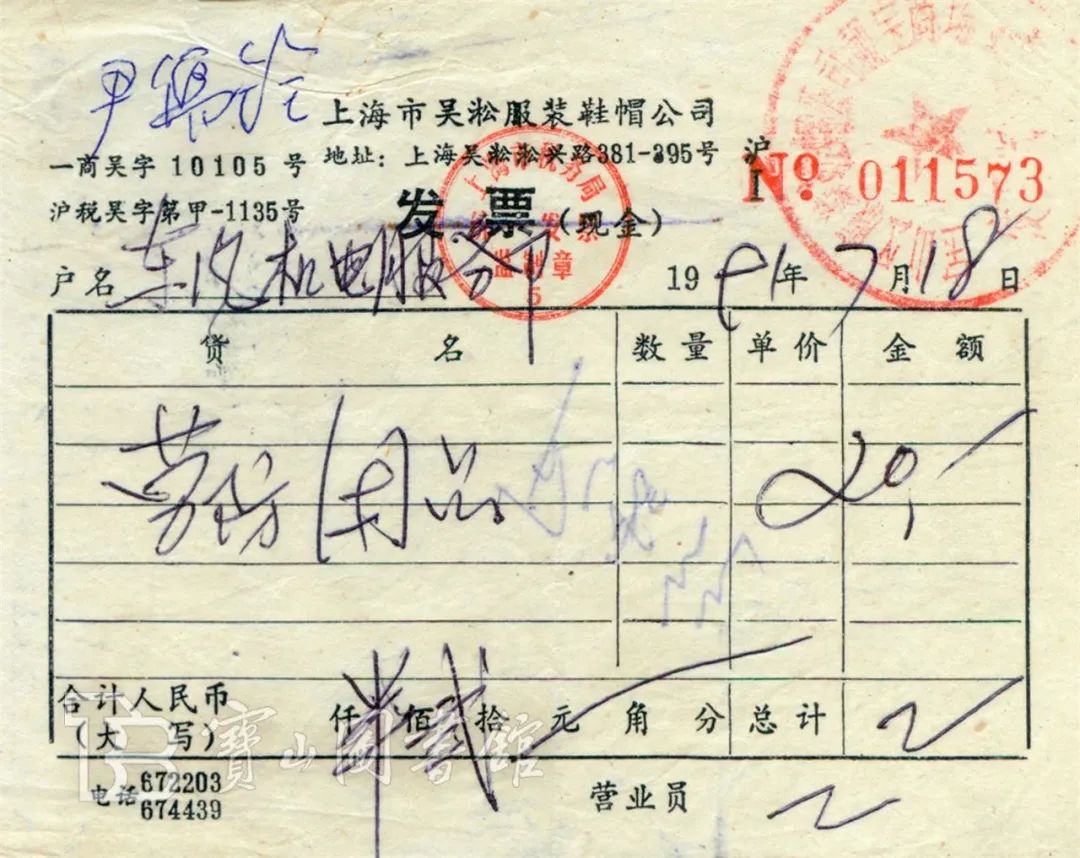 上海市吴淞服装鞋帽公司
一商吴字10105号 地址：上海吴淞淞兴路381-395号
沪税吴字第甲-1135号 发票(现金)
沪 №. 011573
上海市税务局
监制章
5
户名 东风机电服务部 1991年7月18日
货名 数量 单价 金额
劳防用品 20.
合计人民币(大写) 仟 佰贰拾 元 角 分 总计
电话 672203 674439 营业员
寶山圖書館